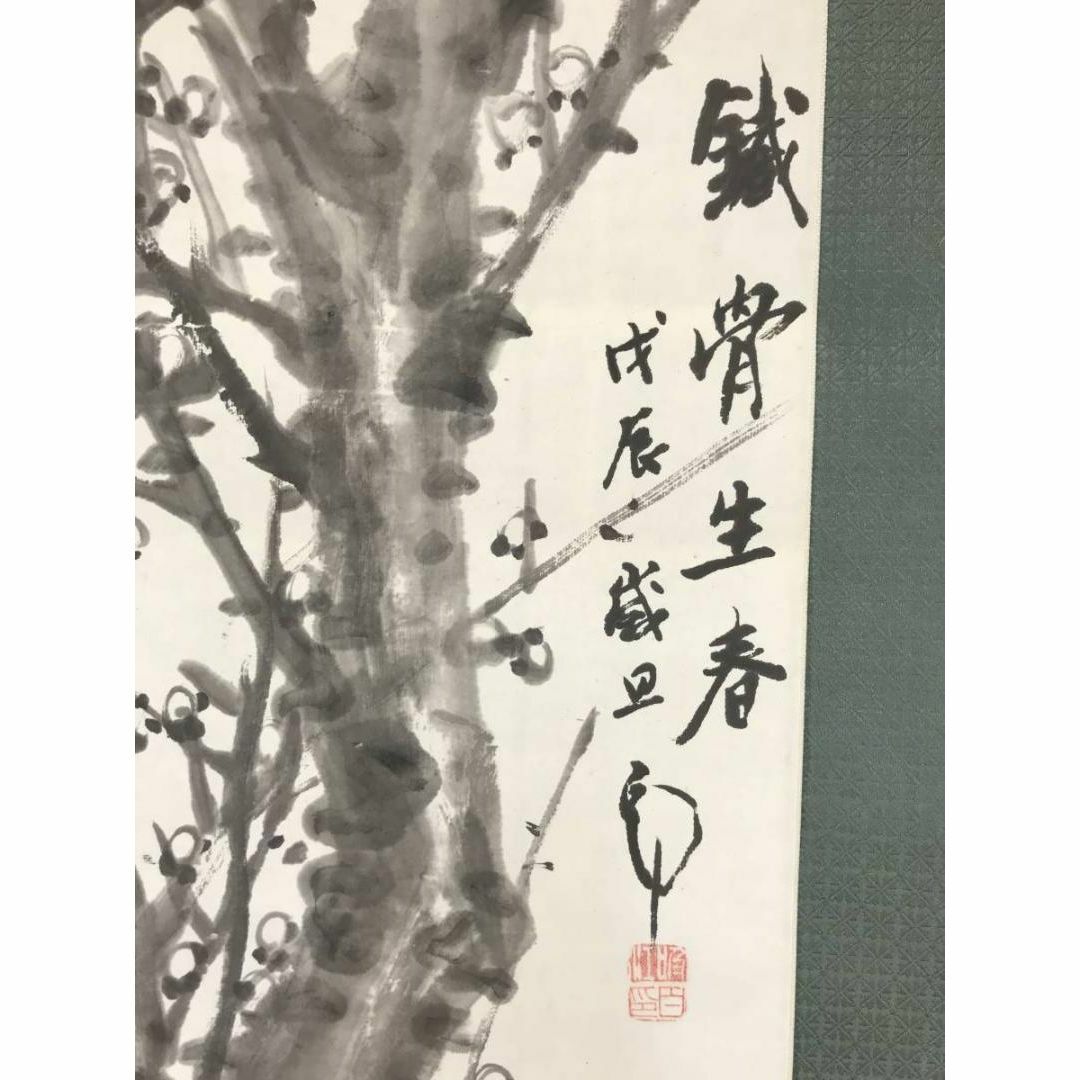 鐵骨生春
戊辰歳旦